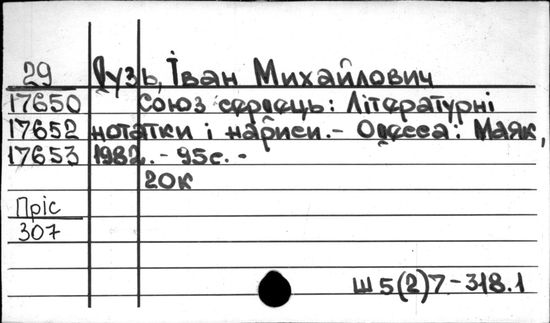 29 Дузь, Іван Михайлович
17650 Союз сердець: Літературні
17652 нотатки і нариси.- Одеса: Маяк,
17653 1982.- 95с.-
20к
Пріс
307
Ш5(2)7-318.1